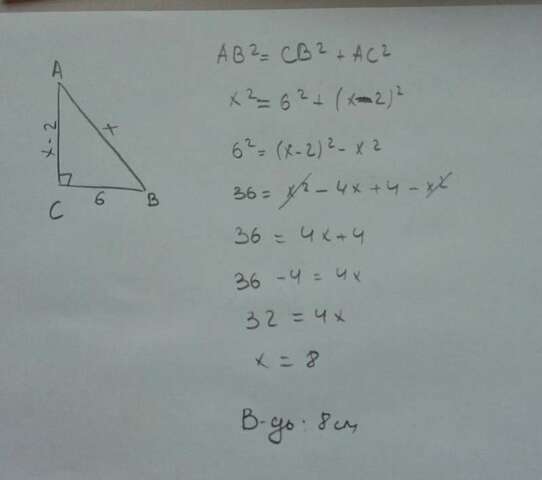 A
x-2
x
C
6
B
AB² = CB² + AC²
x² = 6² + (x-2)²
6² = (x-2)² - x²
36 = x² - 4x + 4 - x²
36 = 4x+4
36 - 4 = 4x
32 = 4x
x = 8
В-дь: 8 см